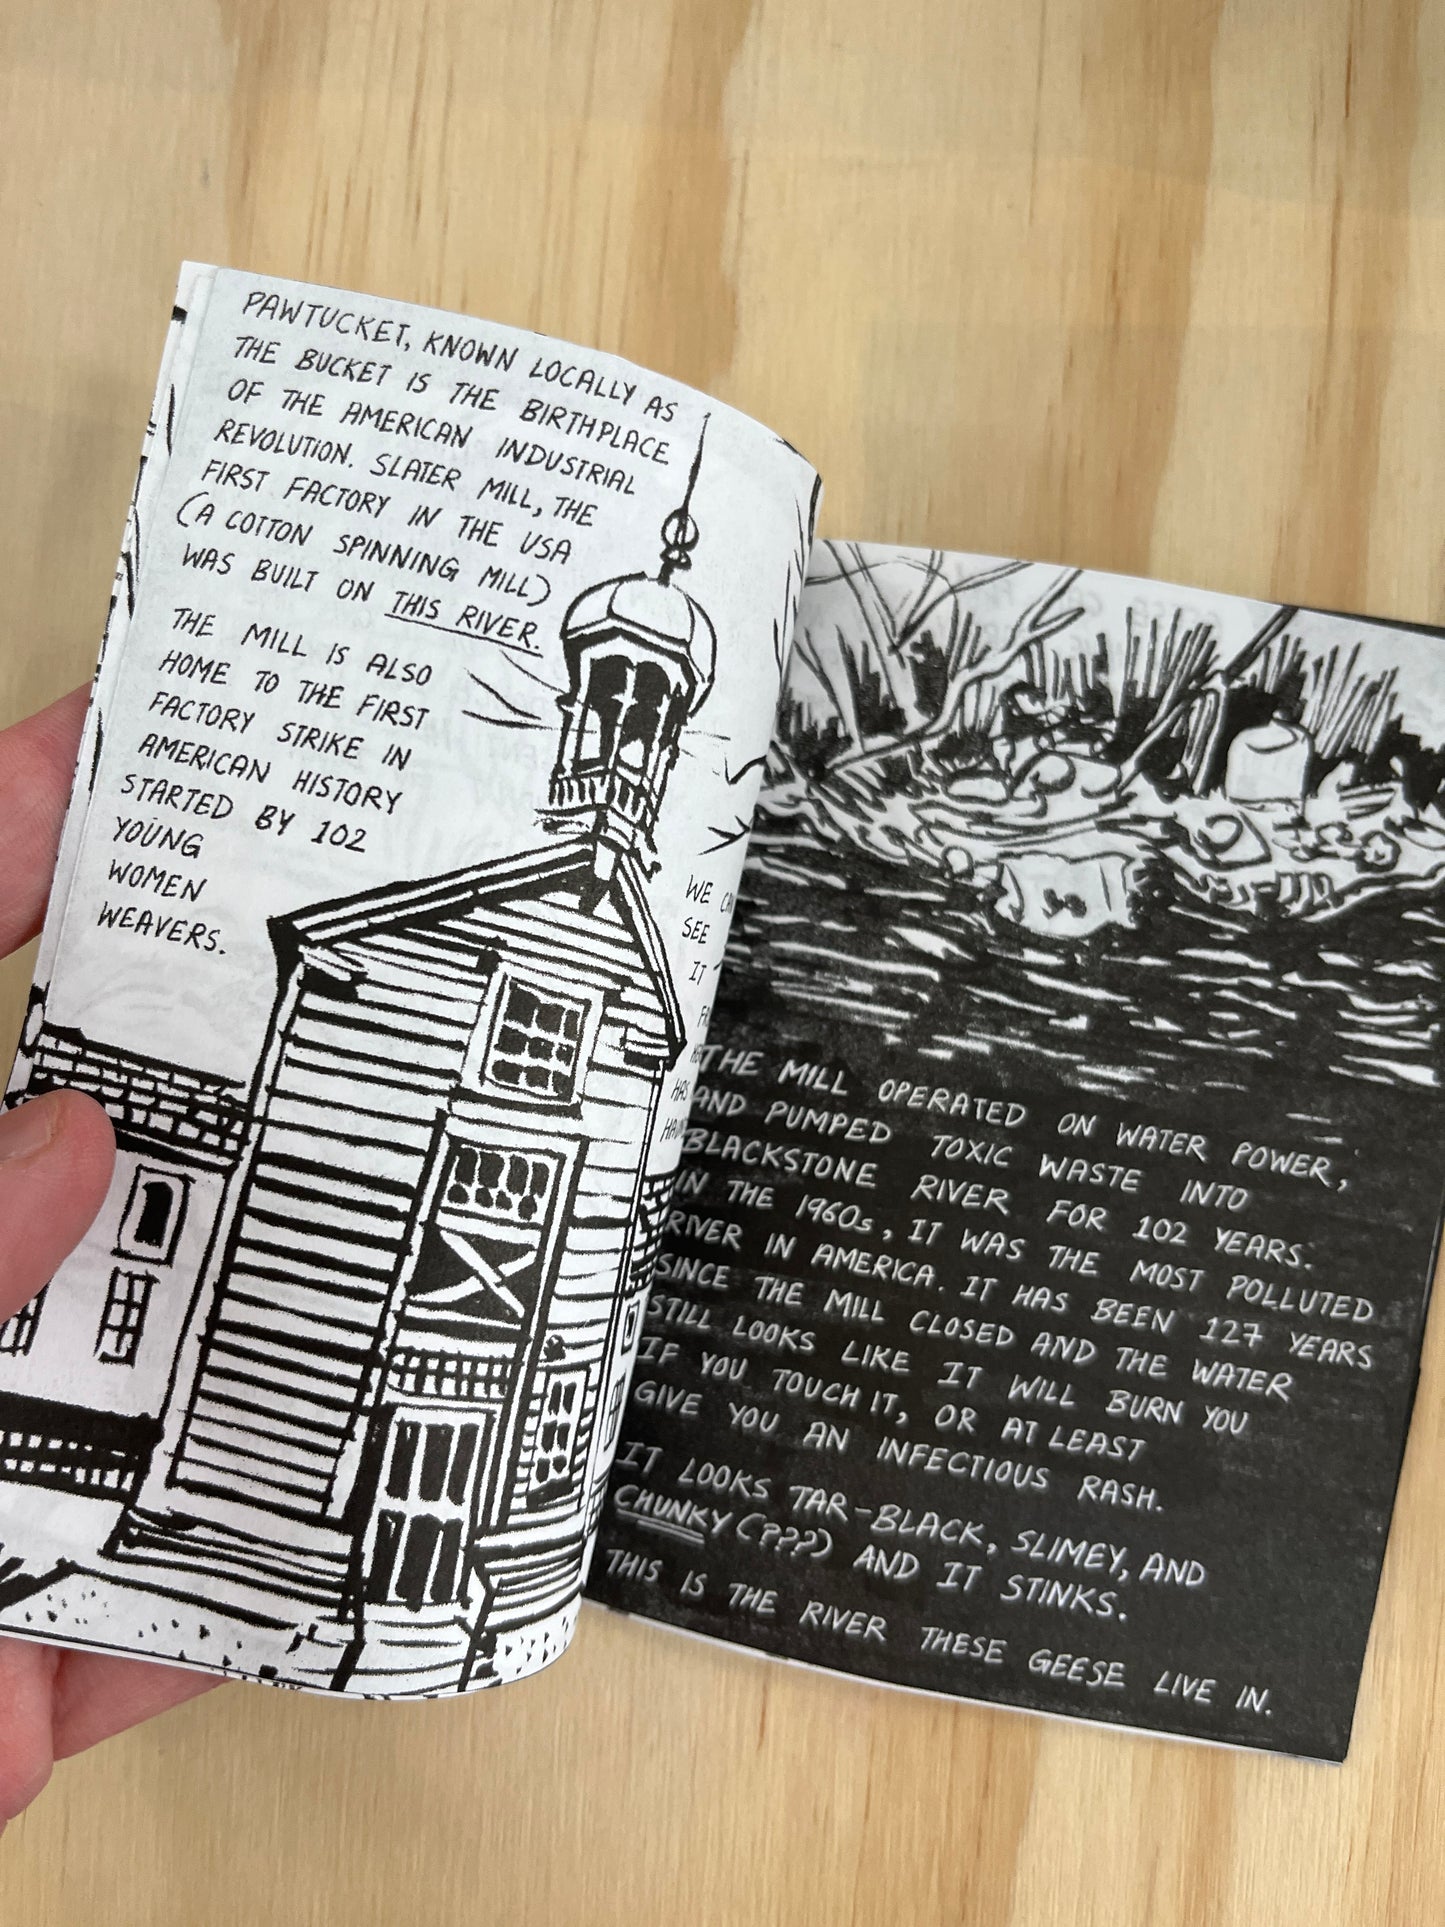 PAWTUCKET, KNOWN LOCALLY AS
THE BUCKET IS THE BIRTHPLACE
OF THE AMERICAN INDUSTRIAL
REVOLUTION. SLATER MILL, THE
FIRST FACTORY IN THE USA
(A COTTON SPINNING MILL)
WAS BUILT ON THIS RIVER.
THE MILL IS ALSO
HOME TO THE FIRST
FACTORY STRIKE IN
AMERICAN HISTORY
STARTED BY 102
YOUNG
WOMEN
WEAVERS.
WE
SEE
IT
HAS
THE MILL OPERATED ON WATER POWER,
AND PUMPED TOXIC WASTE INTO
BLACKSTONE RIVER FOR 102 YEARS.
IN THE 1960s, IT WAS THE MOST POLLUTED
RIVER IN AMERICA. IT HAS BEEN 127 YEARS
SINCE THE MILL CLOSED AND THE WATER
STILL LOOKS LIKE IT WILL BURN YOU
IF YOU TOUCH IT, OR AT LEAST
GIVE YOU AN INFECTIOUS RASH.
IT LOOKS TAR-BLACK, SLIMEY, AND
CHUNKY (???) AND IT STINKS.
THIS IS THE RIVER THESE GEESE LIVE IN.